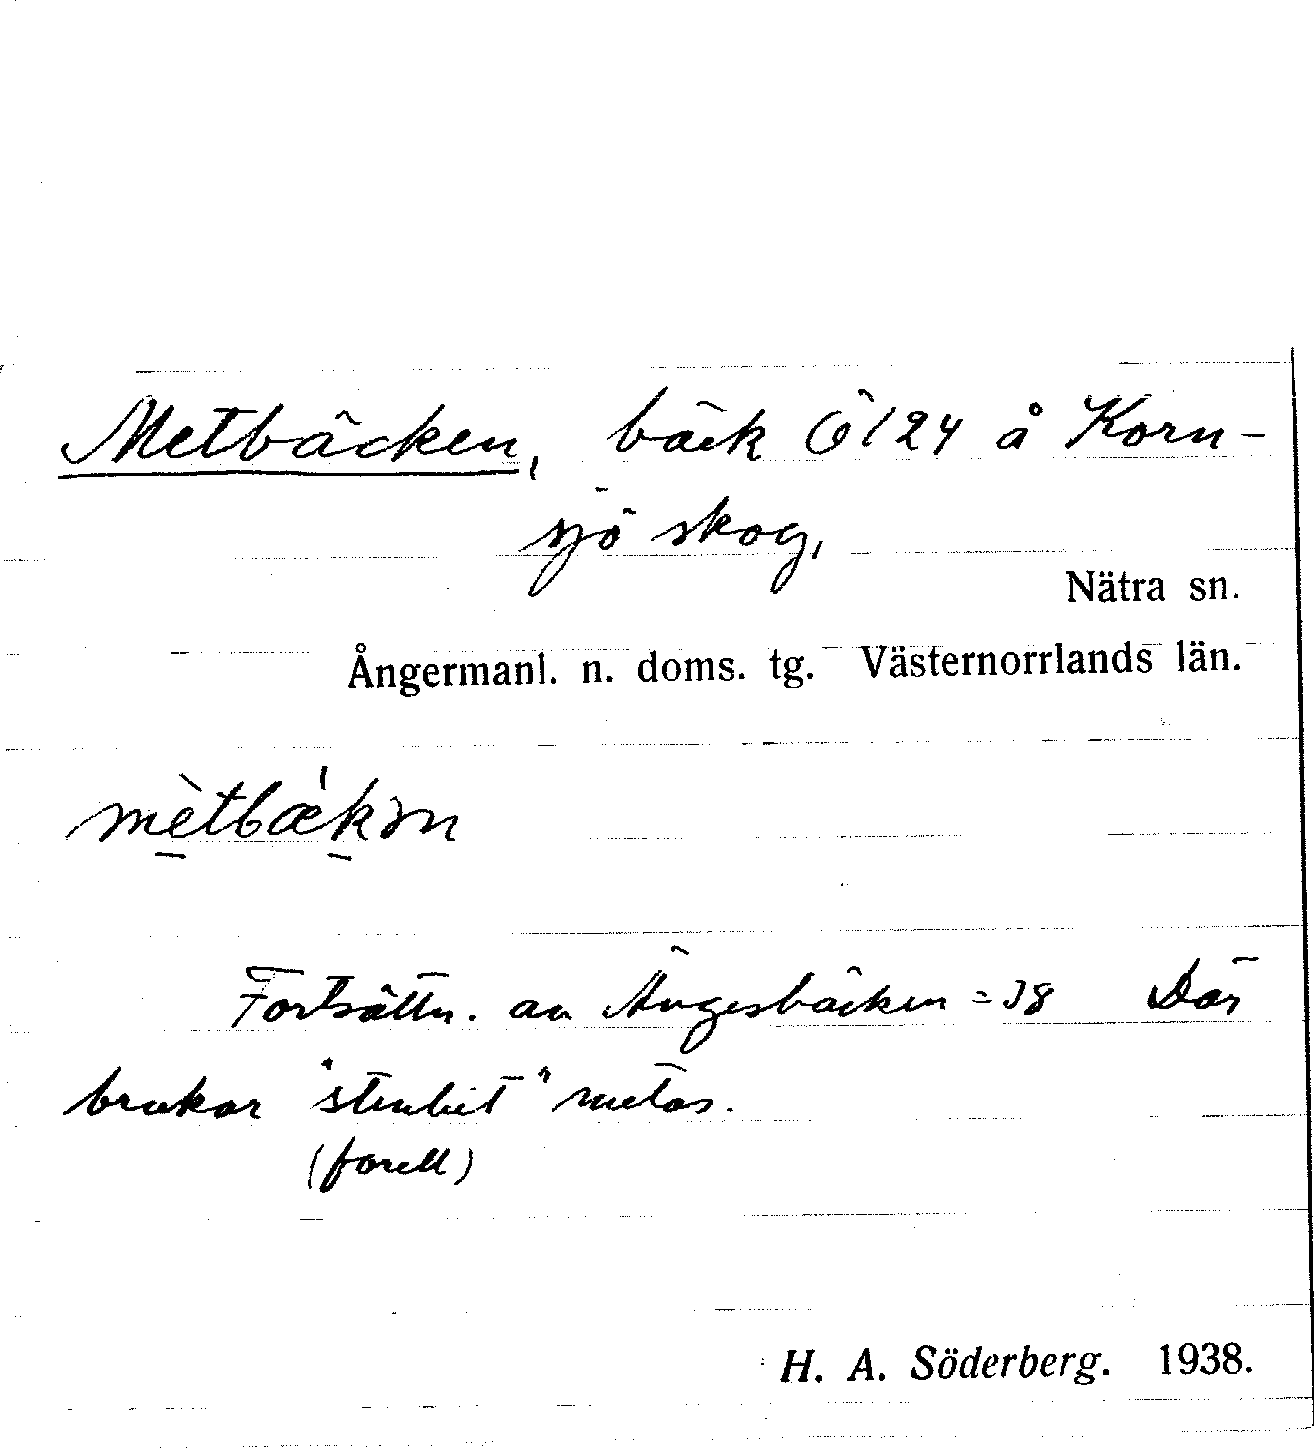 Metbäcken, bäck Ö124 å Korn-
sjö skog,
Nätra sn.
Ångermanl. n. doms. tg. Västernorrlands län.
mètbǽkən
Fortsättn. av Ängesbäcken =38 Där
brukar "stenbit" metas.
(forell)
H. A. Söderberg. 1938.